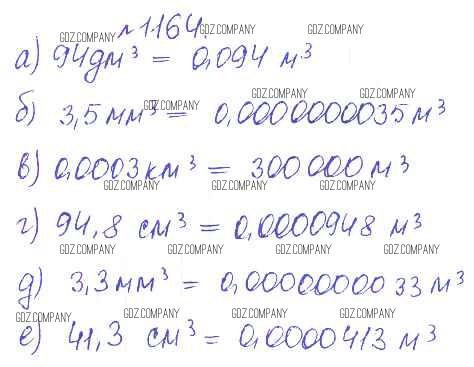 №1164.
GDZ.COMPANY GDZ.COMPANY GDZ.COMPANY
а) 94дм³ = 0,094 м³
GDZ.COMPANY GDZ.COMPANY GDZ.COMPANY
б) 3,5 мм³ = 0,0000000035 м³
в) 0,0003 км³ = 300 000 м³
GDZ.COMPANY GDZ.COMPANY GDZ.COMPANY
г) 94,8 см³ = 0,0000948 м³
GDZ.COMPANY GDZ.COMPANY GDZ.COMPANY GDZ.COMPANY
д) 3,3 мм³ = 0,0000000033 м³
GDZ.COMPANY GDZ.COMPANY GDZ.COMPANY GDZ.COMPANY
е) 41,3 см³ = 0,0000413 м³